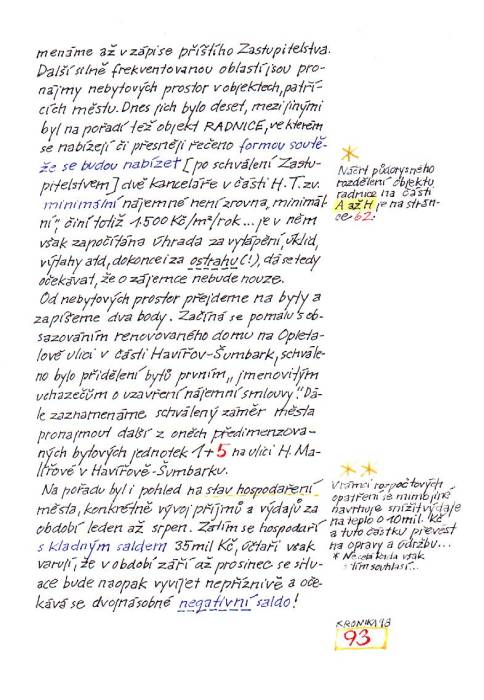 menáme až v zápise příštího Zastupitelstva.
Další silně frekventovanou oblastí jsou pro-
nájmy nebytových prostor v objektech, patří-
cích městu. Dnes jich bylo deset, mezi jinými
byl na pořadí též objekt RADNICE, ve kterém
se nabízejí či přesněji řečeno formou soutě-
že se budou nabízet [po schválení Zastu-
pitelstvem] dvě kanceláře v části H. T. zv.
minimální nájemné není zrovna „minimál-
ní“, činí totiž 1.500 Kč/m²/rok ... je v něm
však započítána úhrada za vytápění, úklid,
výtahy atd, dokonce i za ostrahu (!), dá se tedy
očekávat, že o zájemce nebude nouze.
Od nebytových prostor přejdeme na byty a
zapíšeme dva body. Začíná se pomalu s ob-
sazováním renovovaného domu na Opleta-
lově ulici v části Havířov-Šumbark, schvále-
no bylo přidělení bytů prvním „jmenovitým
uchazečům o uzavření nájemní smlouvy.“ Dá-
le zaznamenáme schválený záměr města
pronajmout další z oněch předimenzova-
ných bytových jednotek 1+5 na ulici H. Ma-
lířové v Havířově-Šumbarku.
Na pořadu byl i pohled na stav hospodaření
města, konkrétně vývoj příjmů a výdajů za
období leden až srpen. Zatím se hospodaří
s kladným saldem 35 mil Kč, účtaři však
varují, že v období září až prosinec se situ-
ace bude naopak vyvíjet nepříznivě a oče-
kává se dvojnásobné negativní saldo!
*
Náčrt půdorysného
rozdělení objektu
radnice na části
A až H je na strán-
ce 62.
**
V rámci rozpočtových
opatření je mimo jiné
navrhuje snížit výdaje
na teplo o 10 mil. Kč
a tuto částku převést
na opravy a údržbu...
* Ne celá rada však
s tím souhlasí...
KRONIKA 98
93